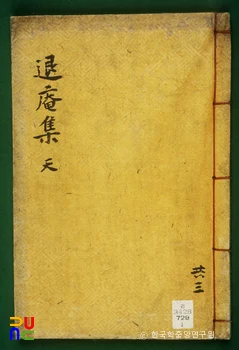 退庵集 天
共三
729
한국학중앙연구원